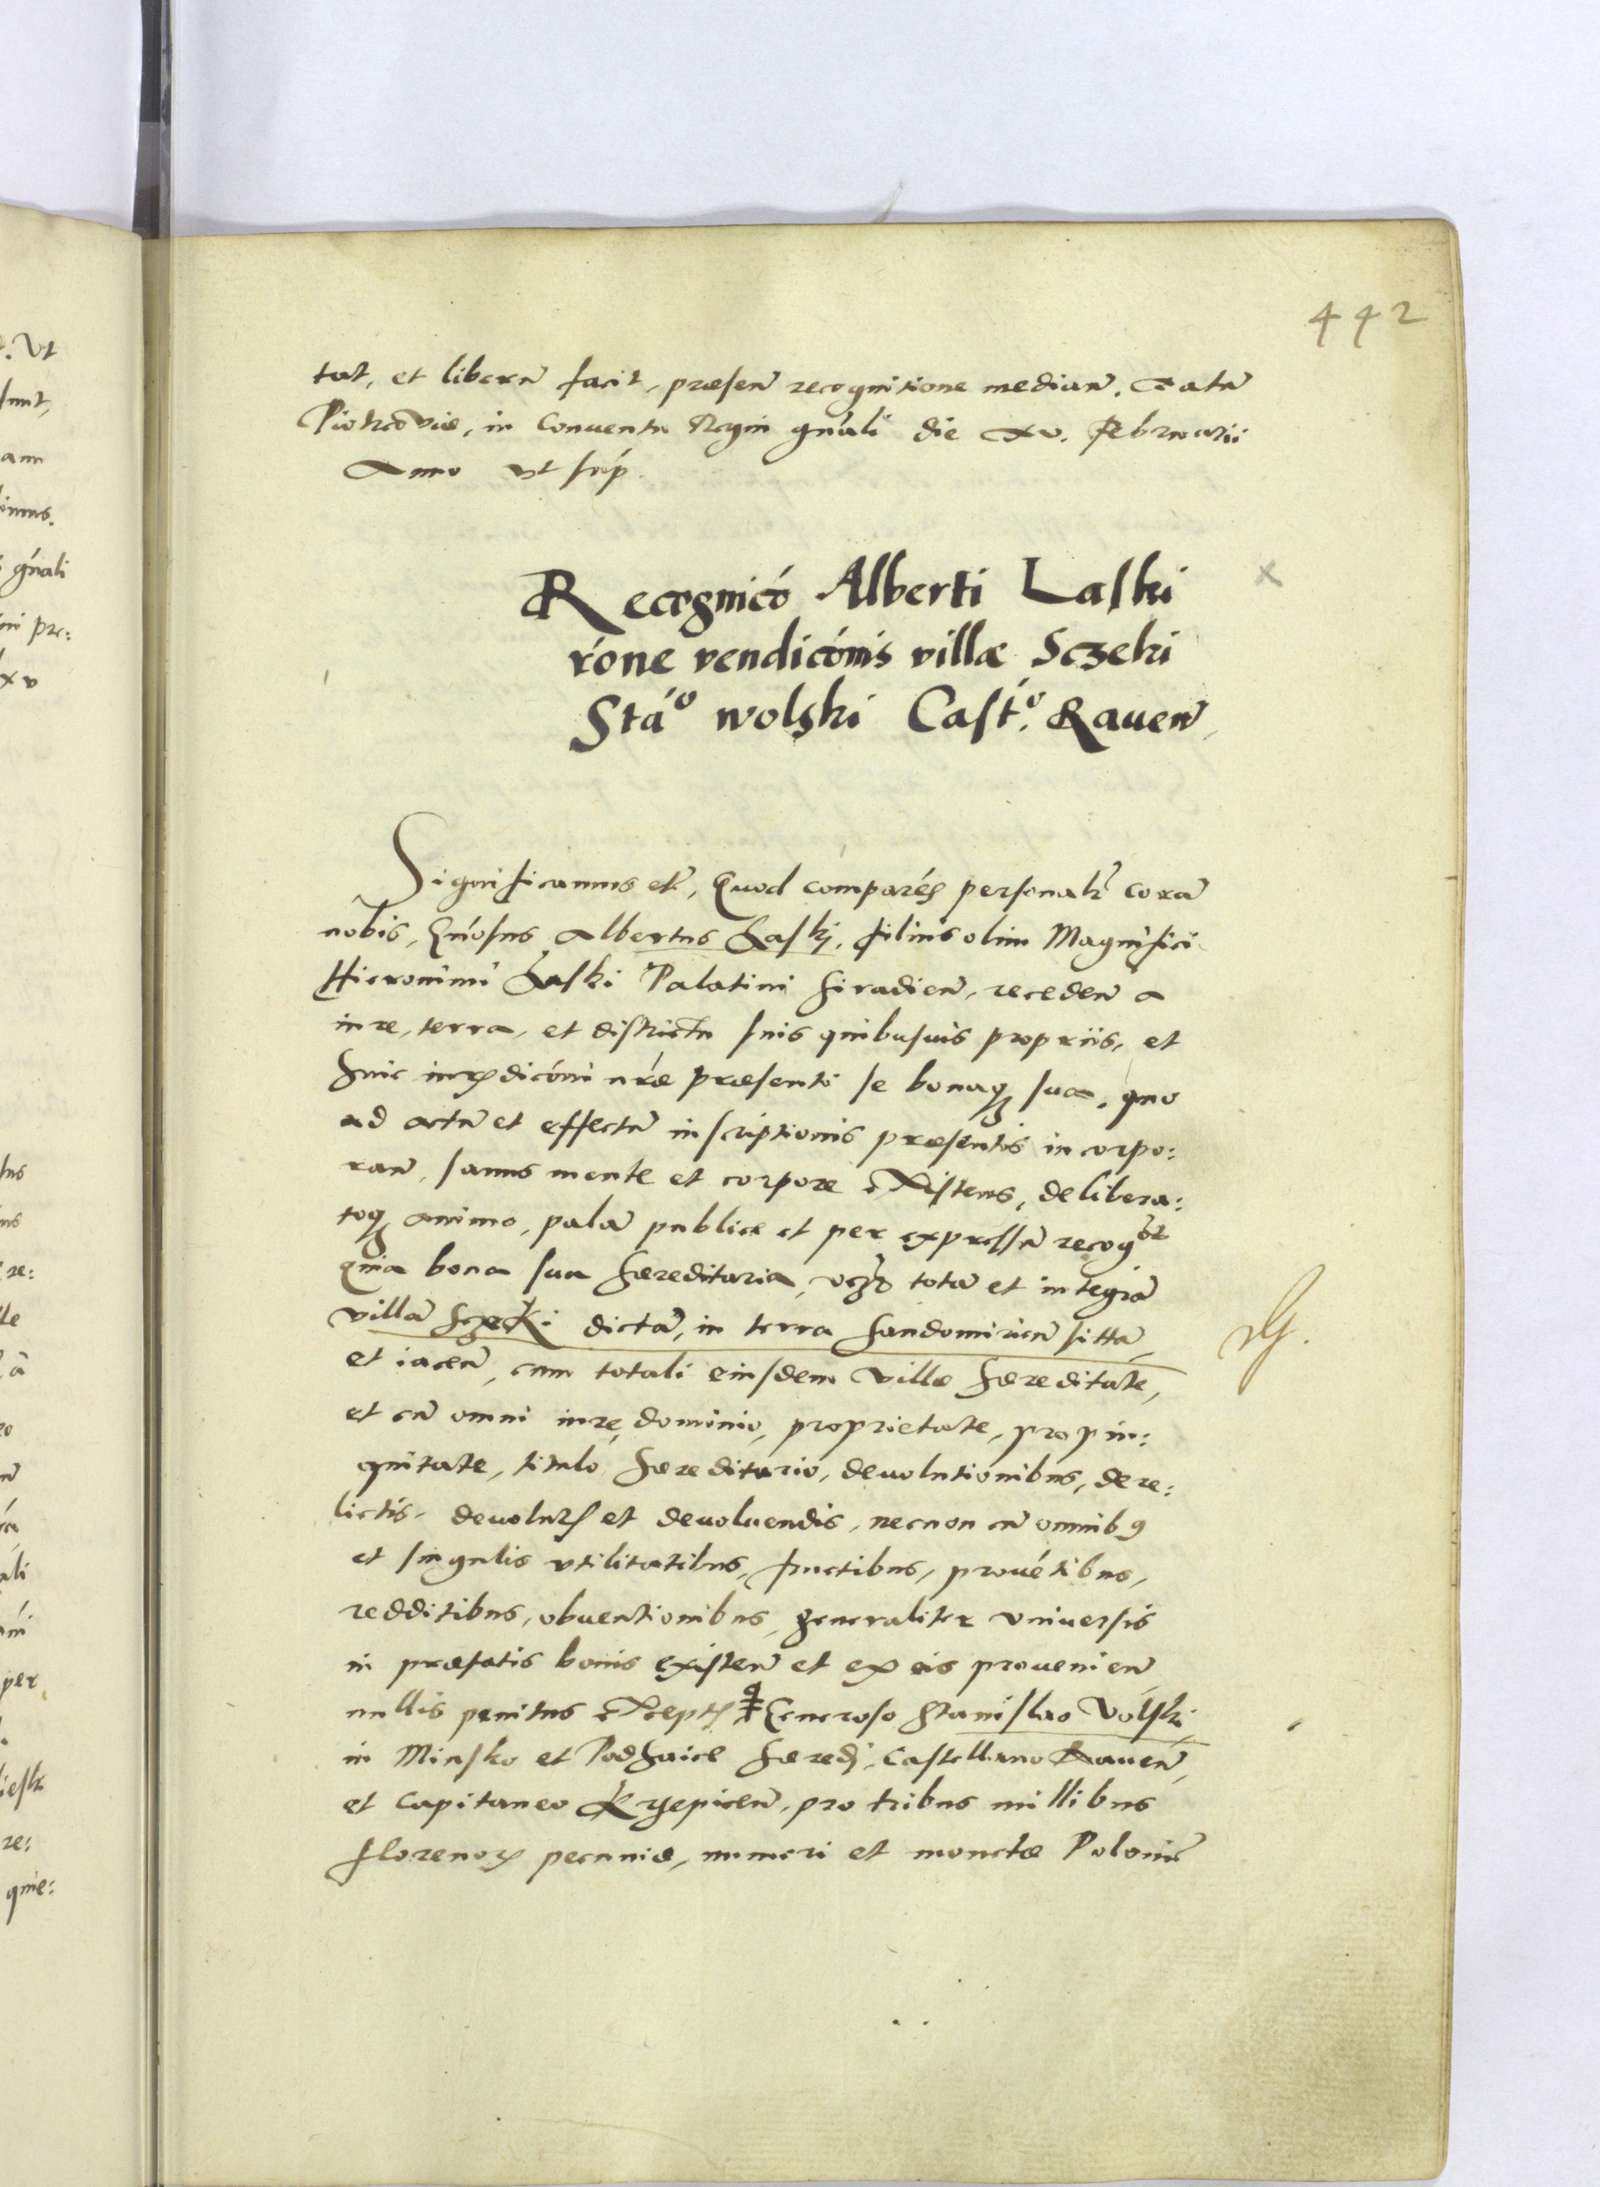 442
tat, et liberū facit, præsen recognitione median. Datū
Piotrcoviæ, in Conventu Regni gńali die xv. Februarii
Anno vt sup.
Recognicó Alberti Laski
róne vendicónis villæ Sczeki
Stáº wolski Castº. Raven
Significamus etc̃, Quod comparés personalr̃ corā
nobis, Gńosus Albertus Laskj, filius olim Magnifici
Hieronimi Laski Palatini Siradien, receden a
iure, terra, et districtu suis quibusuis propriis, et
huic iurisdicóni nr̃æ præsenti se bonaq; sua, quo
ad actū et effectū inscriptionis præsentis incorpo:
ran, sanus mente et corpore existens, delibera:
toq; animo, palā publice et per expressū recogvit
Quia bona sua hæreditaria, vcz̃ totā et integrā
villā Sczeki dictā, in terra Sandomirien sittā,
et iacen, cum totali eiusdem villæ hæreditate,
et cū omni iure, dominio, proprietate, propin:
quitate, titulo hæreditario, devolutionibus, dere:
lictis, devolutis et devoluendis, necnon cū omnib9
et singulis vtilitatibus, fructibus, prouétibus,
redditibus, obuentionibus, generaliter vniversis
in præfatis bonis existen et ex eis provenien
nullis penitus exceptis Generoso Stanislao Volski
in Minsko et Podhaice hæredj, Castellano Raven,
et Capitaneo Krzepicen, pro tribus millibus
florenor̃ pecuniæ, numeri et monetæ Polonic̃